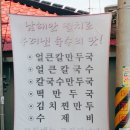 남해안 멸치로
우려낸 육수의 맛!
얼큰칼만두국
얼큰칼국수
칼국수만두국
떡만두국
김치찐만두
수제비